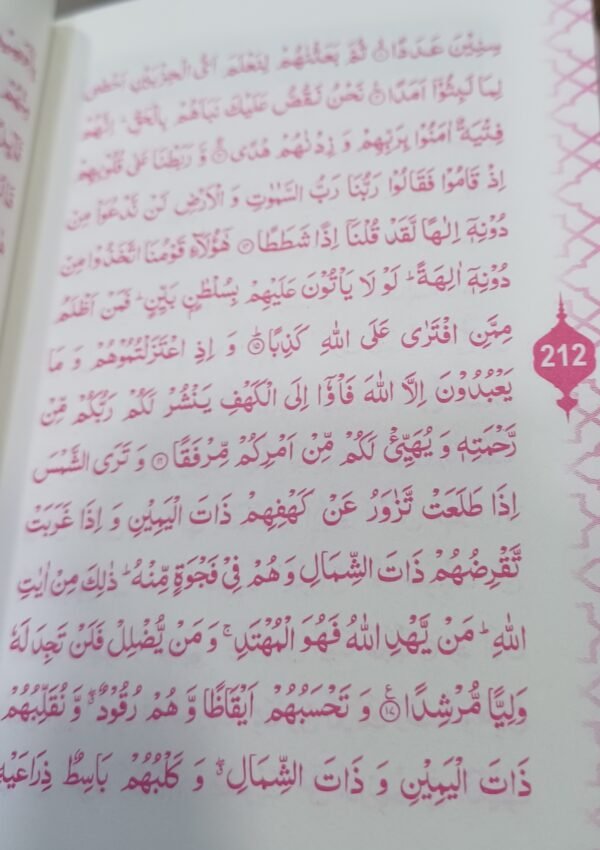 سِنِیْنَ عَدَدًا ۙ﴿۱۱﴾ ثُمَّ بَعَثْنٰهُمْ لِنَعْلَمَ اَیُّ الْحِزْبَیْنِ اَحْصٰی
لِمَا لَبِثُوْۤا اَمَدًا ﴿۱۲﴾ نَحْنُ نَقُصُّ عَلَیْکَ نَبَاَهُمْ بِالْحَقِّ ؕ اِنَّهُمْ
فِتْیَۃٌ اٰمَنُوْا بِرَبِّهِمْ وَ زِدْنٰهُمْ هُدًی ﴿۱۳﴾ وَّ رَبَطْنَا عَلٰی قُلُوْبِهِمْ
اِذْ قَامُوْا فَقَالُوْا رَبُّنَا رَبُّ السَّمٰوٰتِ وَ الْاَرْضِ لَنْ نَّدْعُوَا۠ مِنْ
دُوْنِهٖۤ اِلٰـهًا لَّقَدْ قُلْنَاۤ اِذًا شَطَطًا ﴿۱۴﴾ هٰۤؤُلَآءِ قَوْمُنَا اتَّخَذُوْا مِنْ
دُوْنِهٖۤ اٰلِهَۃً ؕ لَوْ لَا یَاْتُوْنَ عَلَیْهِمْ بِسُلْطٰنٍۭ بَیِّنٍ ؕ فَمَنْ اَظْلَمُ
مِمَّنِ افْتَرٰی عَلَی اللهِ کَذِبًا ﴿ؕ۱۵﴾ وَ اِذِ اعْتَزَلْتُمُوْهُمْ وَ مَا
یَعْبُدُوْنَ اِلَّا اللهَ فَاْوٗۤا اِلَی الْکَهْفِ یَنْشُرْ لَکُمْ رَبُّکُمْ مِّنْ
رَّحْمَتِهٖ وَ یُهَیِّیٴْ لَکُمْ مِّنْ اَمْرِکُمْ مِّرْفَقًا ﴿۱۶﴾ وَ تَرَی الشَّمْسَ
اِذَا طَلَعَتْ تَّزٰوَرُ عَنْ کَهْفِهِمْ ذَاتَ الْیَمِیْنِ وَ اِذَا غَرَبَتْ
تَّقْرِضُهُمْ ذَاتَ الشِّمَالِ وَ هُمْ فِیْ فَجْوَۃٍ مِّنْهُ ؕ ذٰلِکَ مِنْ اٰیٰتِ
اللهِ ؕ مَنْ یَّهْدِ اللهُ فَهُوَ الْمُهْتَدِ ۚ وَ مَنْ یُّضْلِلْ فَلَنْ تَجِدَ لَهٗ
وَلِیًّا مُّرْشِدًا ﴿٪۱۷﴾ وَ تَحْسَبُهُمْ اَیْقَاظًا وَّ هُمْ رُقُوْدٌ ٭ۖ وَّ نُقَلِّبُهُمْ
ذَاتَ الْیَمِیْنِ وَ ذَاتَ الشِّمَالِ ٭ۖ وَ کَلْبُهُمْ بَاسِطٌ ذِرَاعَیْهِ
212